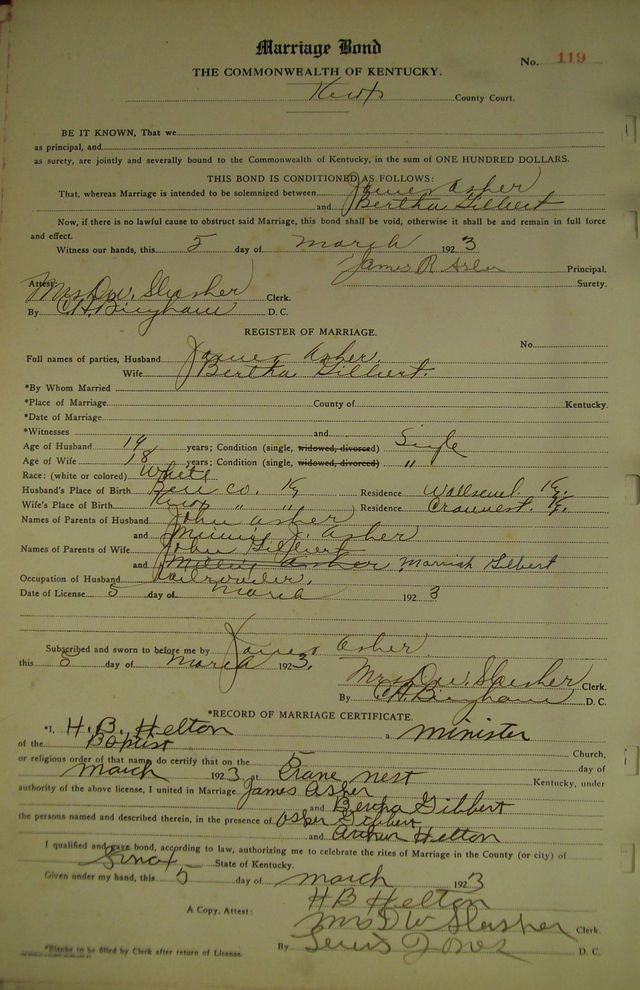 Marriage Bond
No. 119
THE COMMONWEALTH OF KENTUCKY.
Knox County Court.
BE IT KNOWN, That we
as principal, and
as surety, are jointly and severally bound to the Commonwealth of Kentucky, in the sum of ONE HUNDRED DOLLARS.
THIS BOND IS CONDITIONED AS FOLLOWS:
That, whereas Marriage is intended to be solemnized between James Asher
and Bertha Gilbert
Now, if there is no lawful cause to obstruct said Marriage, this bond shall be void, otherwise it shall be and remain in full force
and effect.
Witness our hands, this 5 day of March 1923
James R Asher Principal.
Surety.
Attest:
Mrs D. W. Slusher Clerk.
By C. H. Bingham D. C.
REGISTER OF MARRIAGE.
No.
Full names of parties, Husband James Asher.
Wife Bertha Gilbert.
*By Whom Married
*Place of Marriage County of Kentucky.
*Date of Marriage
*Witnesses and
Age of Husband 19 years; Condition (single, widowed, divorced) Single
Age of Wife 18 years; Condition (single, widowed, divorced) "
Race: (white or colored) White
Husband's Place of Birth Bell Co. Ky Residence Wallsend Ky.
Wife's Place of Birth Knox " " Residence Cranenest Ky.
Names of Parents of Husband John Asher
and J. Asher
Names of Parents of Wife John Gilbert
and Asher Gilbert
Occupation of Husband
Date of License 5 day of March 1923
Subscribed and sworn to before me by James Asher
this 5 day of March 1923.
Mrs D. W. Slusher Clerk.
By C. H. Bingham D. C.
*RECORD OF MARRIAGE CERTIFICATE.
*I, H. B. Helton a Minister
of the Baptist Church,
or religious order of that name, do certify that on the 5 day of
March 1923 at Crane nest Kentucky, under
authority of the above license, I united in Marriage James Asher
and Bertha Gibbert
the persons named and described therein, in the presence of Osher Gibbert
and Arthur Helton
I qualified and gave bond, according to law, authorizing me to celebrate the rites of Marriage in the County (or city) of
Knox State of Kentucky.
Given under my hand, this 5 day of March 1923
H B Helton
A Copy, Attest: Mrs D W Slusher Clerk.
By Lewis Jones D. C.
*Blanks to be filled by Clerk after return of License.